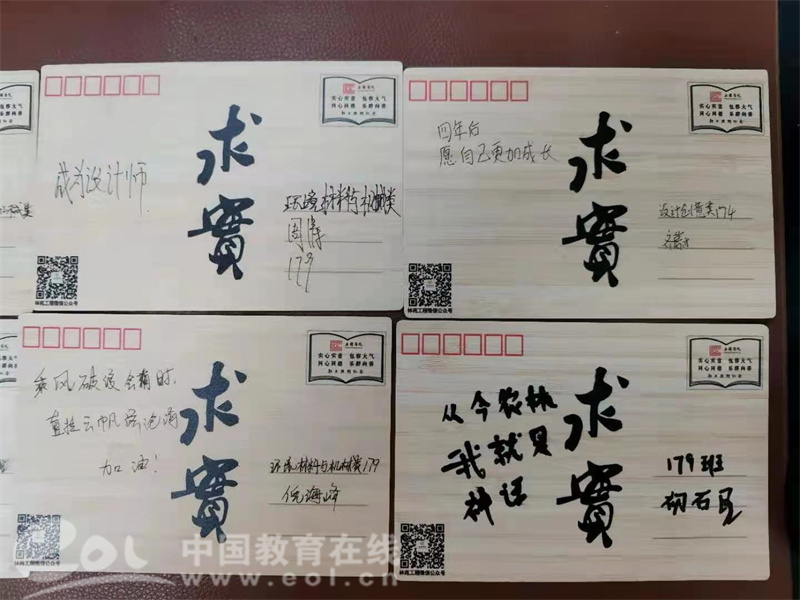 成为设计师
求
實
实心实意 包容大气
同心同德 乐群向善
环境材料与机械类
周
179
林苑工程微信公众号
四年后
愿自己更加成长
求
實
实心实意 包容大气
同心同德 乐群向善
设计创意类174
林苑工程微信公众号
乘风破浪会有时
直挂云帆济沧海
加油！
求
實
实心实意 包容大气
同心同德 乐群向善
环境材料与机械类179
倪海峰
林苑工程微信公众号
从今农林
我就是
求
實
实心实意 包容大气
同心同德 乐群向善
179班
林苑工程微信公众号
eol 中国教育在线
www.eol.cn